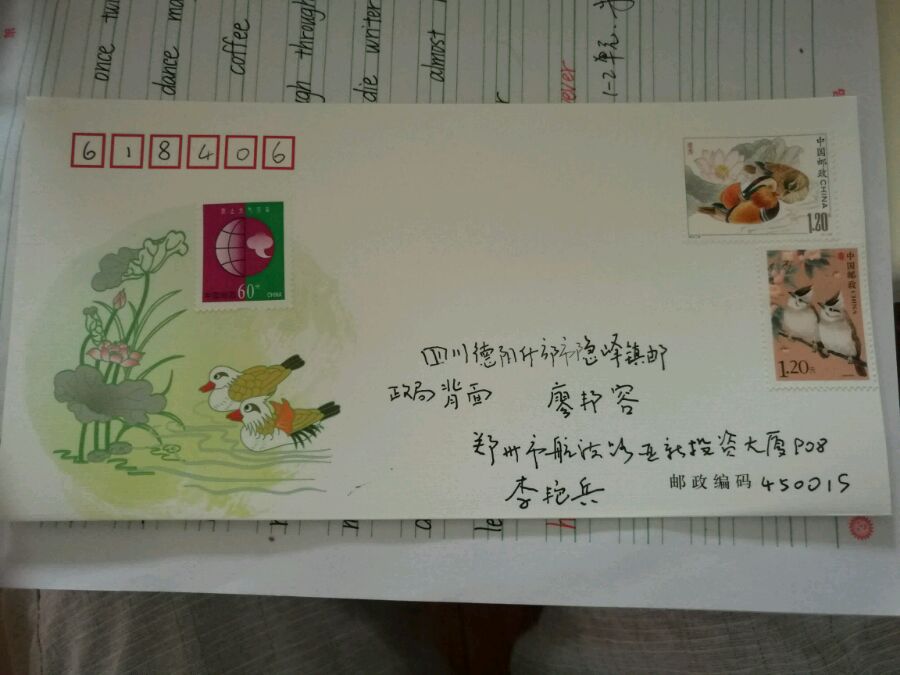 once
dance
coffee
through
die writer
almost
1-2单元
618406
中国邮政 CHINA
1.20
60分
CHINA
中国邮政 CHINA
1.20元
四川德阳什邡市隐峰镇邮
政局背面 廖邦容
郑州市航海路亚新投资大厦908
李艳兵 邮政编码 450015